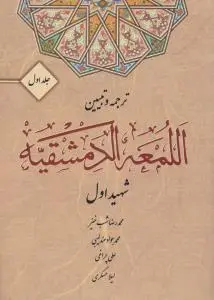 جلد اول
ترجمه و تبیین
اللمعه الدمشقیه
شهید اول
محمدرضا شب‌خیز
محمدجواد
علی
لیلا عسکری